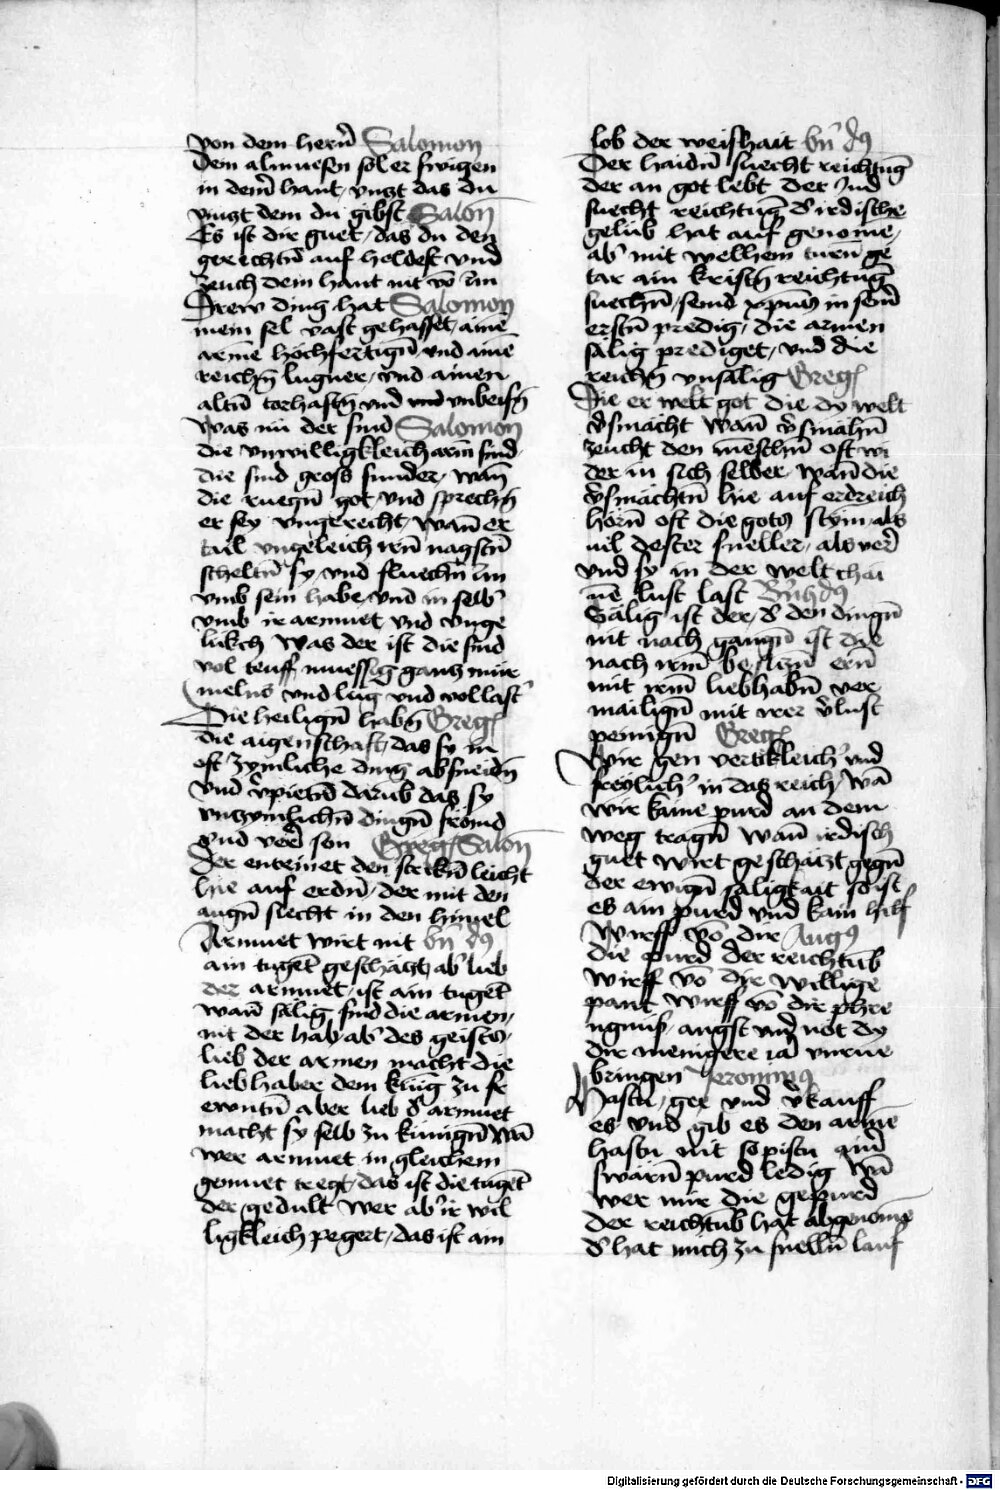 von dem herrn̄ Salomon
Dem almuesen sol er swigen
in dem̄ hant, vnczt das du
vinczt dem du gibst Salon̄
Es ist dir guet, das du den
gerechtn̄ auf heldest vnd
zeuch dein hant nit vō im
Drew ding hat Salomon
mein sel vast gehasset, ainē
armē hochfertign̄ vnd ainē
reichn̄ lugner, vnd ainen
altn̄ torhaftn̄ vnd vnd vnbeisn̄
Was nu der sind Salomon
die vnwilligkleich arm sind
die sind gross sunder, wan̄
die ruegn̄ got, vnd sprechn̄
er sey vngerecht, wan̄ er
tail vngeleich irn̄ nagstn̄
scheltn̄ sy, vnd fluechn̄ im
vmb sein habe, vnd in selb
vmb ir armuet vnd vnge
lukch Was der ist die sind
vol teuff muessig gantz mür
melns vnd lug vnd wollast
Die heilign̄ habn̄ Greg
die aigenschaft, das sy in
oft zymliche ding absneidn̄
vnd v̄pietn̄ darūb das sy
vnczymlichn̄ dingn̄ frömd
vnd verr̄ sein Greg Salon̄
der entrinet den strikn̄ leicht
hie auf erdn̄, der mit den
augn̄ siecht in den himel
Armuet wirt nit bn̄ dꝯ
ain tugēt geschätzt, ab lieb
der armuet, ist ain tugēt
wan̄ sälig sind die armen,
nit der hab, ab des geistes,
lieb der armen macht die
liebhaber dem künig zu fr
ewntn̄ aber lieb d armuet
macht sy selb zu künign̄ Wā
wer armuet in gleichem
gemuet tregt, das ist die tugēt
der gedult Wer ab ir wil
ligkleich pegert, das ist ain
lob der weishait bn̄ dꝯ
Der haidn̄ suecht reichtūg
der an got lebt Der Jud
suecht reichtūg d irdische
gelüb hat auf genomē,
ab mit welhem turn̄ ge
tar ain kristn̄ reichtūg
suechn̄, seind xp̄us in sein̄
erstn̄ predig, die armen
sälig prediget, vnd die
reichn̄ vnsälig Greg
Die er welt got die dy welt
v̄smächt wan̄ v̄smähn̄
zeucht den menschn̄ oft wi
der in sich selber, wan̄ die
v̄smächtn̄ hie auf erdreich
hörn̄ oft die gots stym, als
uil dester sneller, als verr̄
vnd sy in der welt chai
nē lust last Bn̄hdꝯ
Sälig ist der, d den dingn̄
nit nach gangn̄ ist die
nach irm̄ besitzn̄ ern̄
mit irm̄ liebhabn̄ ver
mailign̄ mit irer v̄lust
peinign̄ Greg
Wir gen vertikleich vnd
freylich in das reich, wā
wir kaine purd an dem
weg tragn̄ wan̄ irdisch
guet wirt geschätzt gegn̄
der ewign̄ säligkait so ist
es ain purd vnd kain hilf
Wirff vō dir Augꝯ
die purd der reichtūb
wirff vō dir willige
pant wirff vō dir
angst vnd not dy
dir menigere iar vnrue
bringen Jeronimꝯ
Hastu, gee vnd v̄kauff
es vnd gib es den armē
hastu nit so pistu ainr̄
swärn̄ purd ledig Wā
wer mir die gepurd
der reichtūb hat abgenomē
d hat mich zu snellm̄ lauf
Digitalisierung gefördert durch die Deutsche Forschungsgemeinschaft - DFG